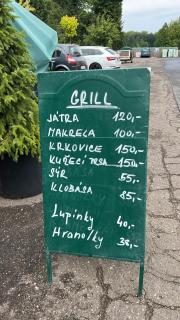 GRILL
JÁTRA 120,-
MAKRELA 100,-
KRKOVICE 150,-
KUŘECÍ PRSA 150,-
SÝR 55,-
KLOBÁSA 85,-
Lupínky 40,-
Hranolky 38,-